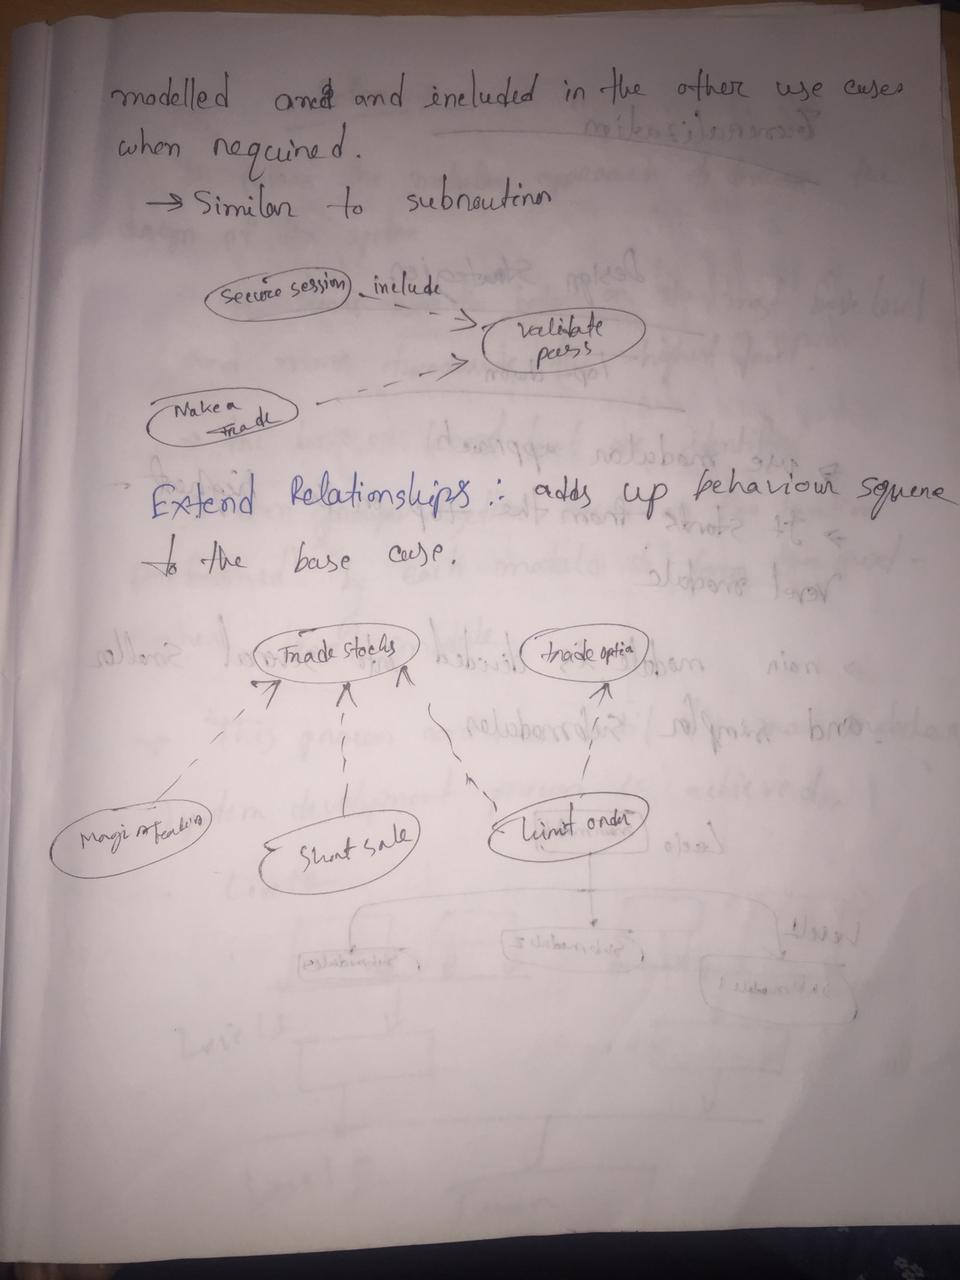 modelled and and included in the other use cases
when required.
→ Similar to subroutin
Secure session include
validate
pass
Make a
Trade
Extend Relationships : adds up behaviour squene
to the base case.
Trade stocks
trade optio
Short sale
Limit order